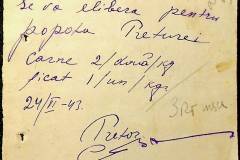 se va elibera pentru
popota Preturei
carne 2/două/kg
ficat 1/un/kgr
24/II-43.
Pretor,